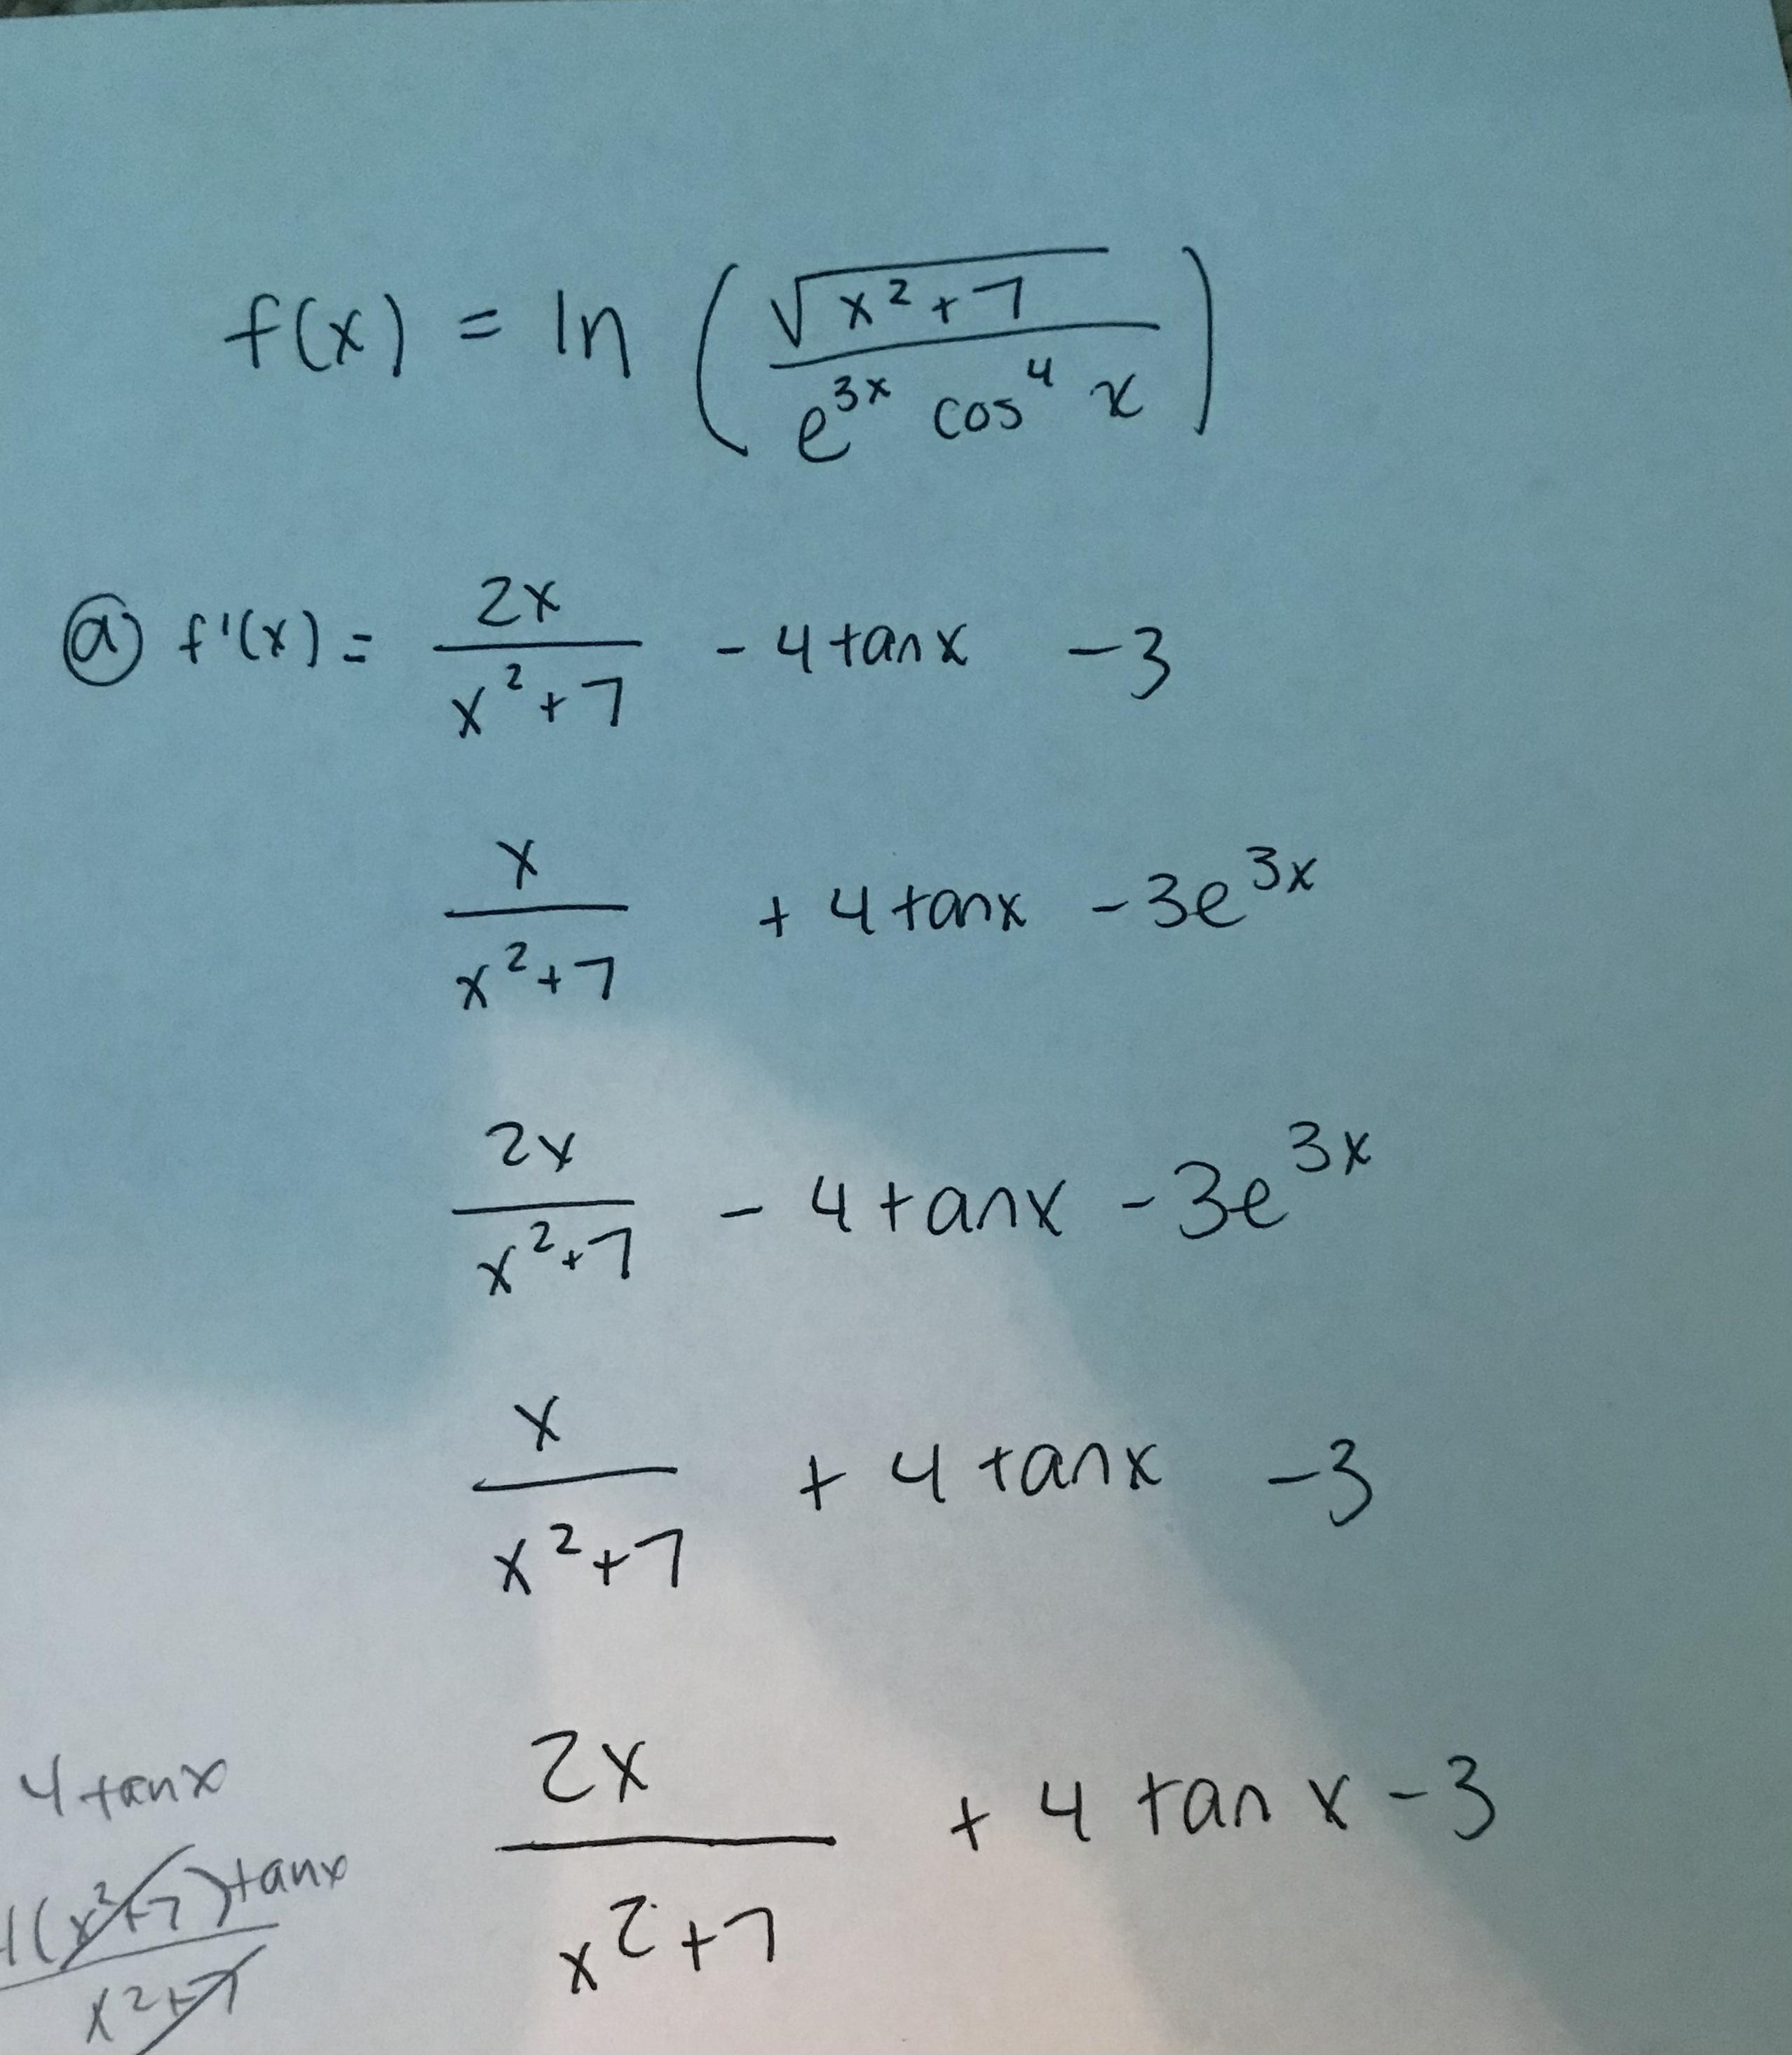 f(x) = ln ( √(x²+7) / e^(3x) cos⁴ x )
ⓐ f'(x) = 2x / x²+7 - 4 tanx - 3
x / x²+7 + 4 tanx - 3e^(3x)
2x / x²+7 - 4 tanx - 3e^(3x)
x / x²+7 + 4 tanx - 3
2x / x²+7 + 4 tan x - 3
4 tanx
(x²+7) tanx / x²+7